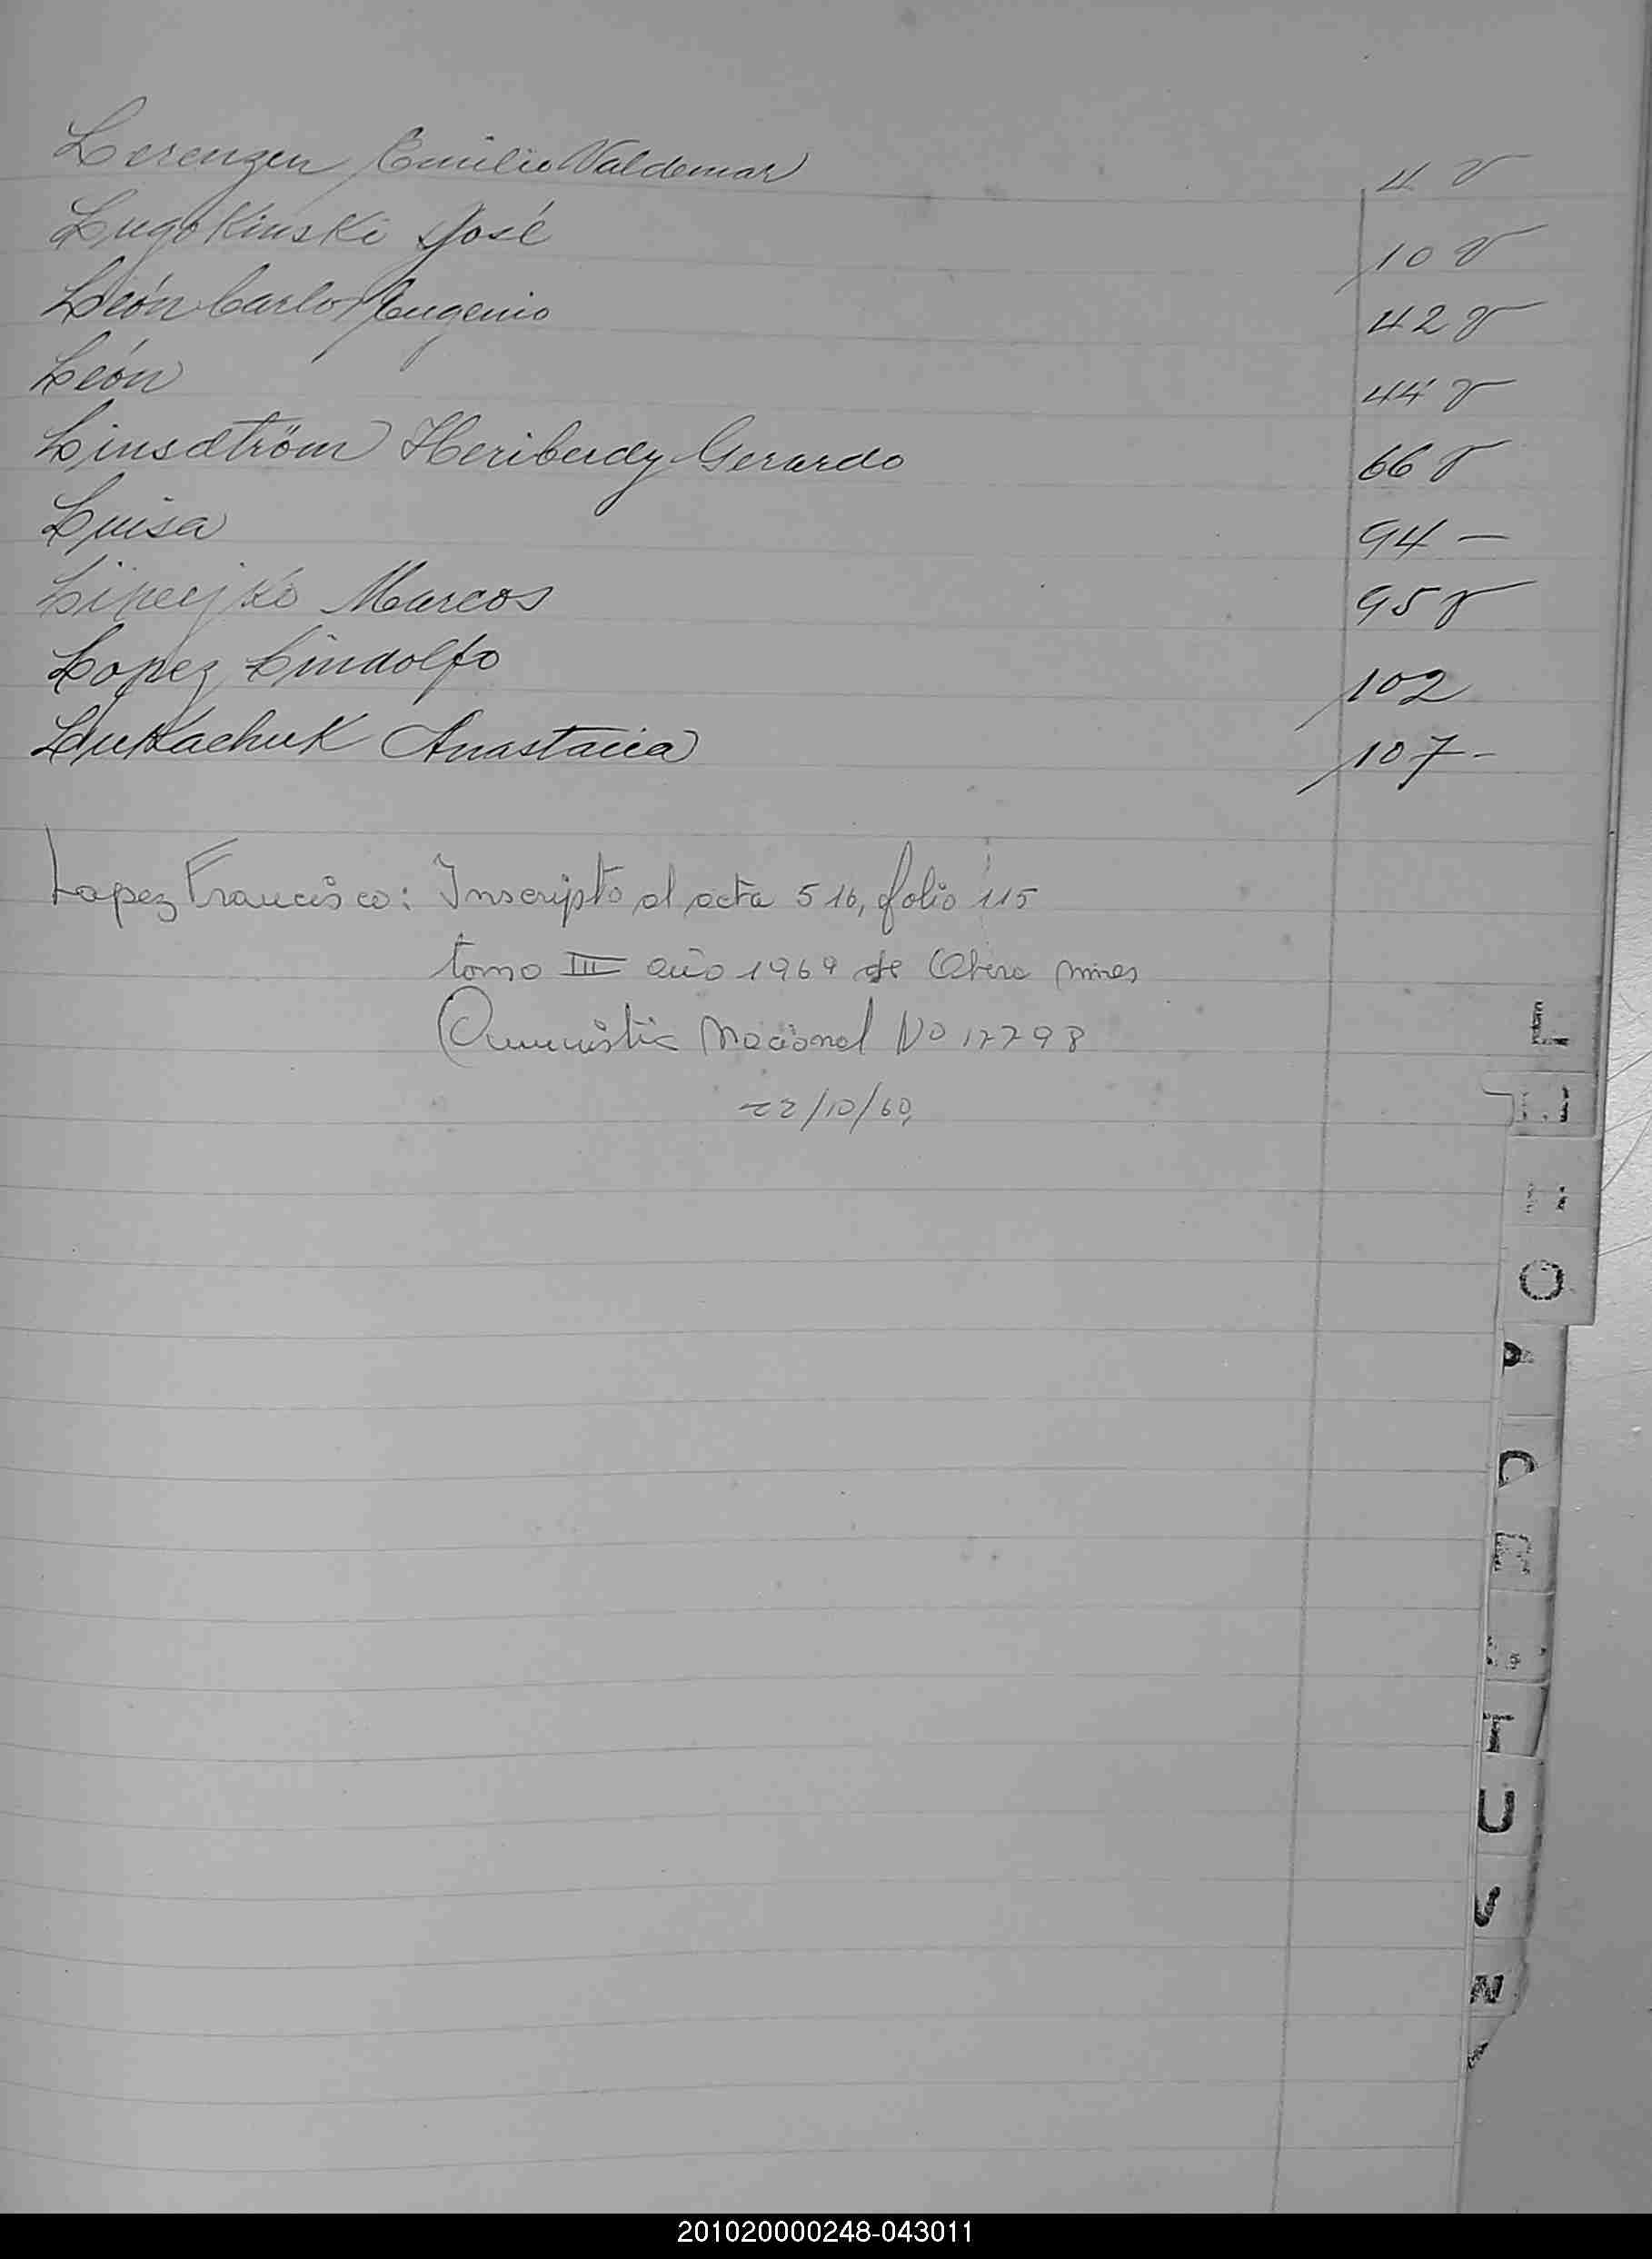 Lerenzen Emilio Valdemar 4 v
Lugokinski José 10 v
León Carlos Eugenio 42 v
León 44 v
Linsdtröm Heriberdy Gerardo 66 v
Luisa 94 —
Marcos 95 v
Lopez Lindolfo 102
Lukachuk Anastacia 107 -
Lopez Francisco: Inscripto al acta 516, folio 115
tomo III año 1969 de Obera mnes
Nacional No 17798
22/10/60
O
T
U
V
201020000248-043011